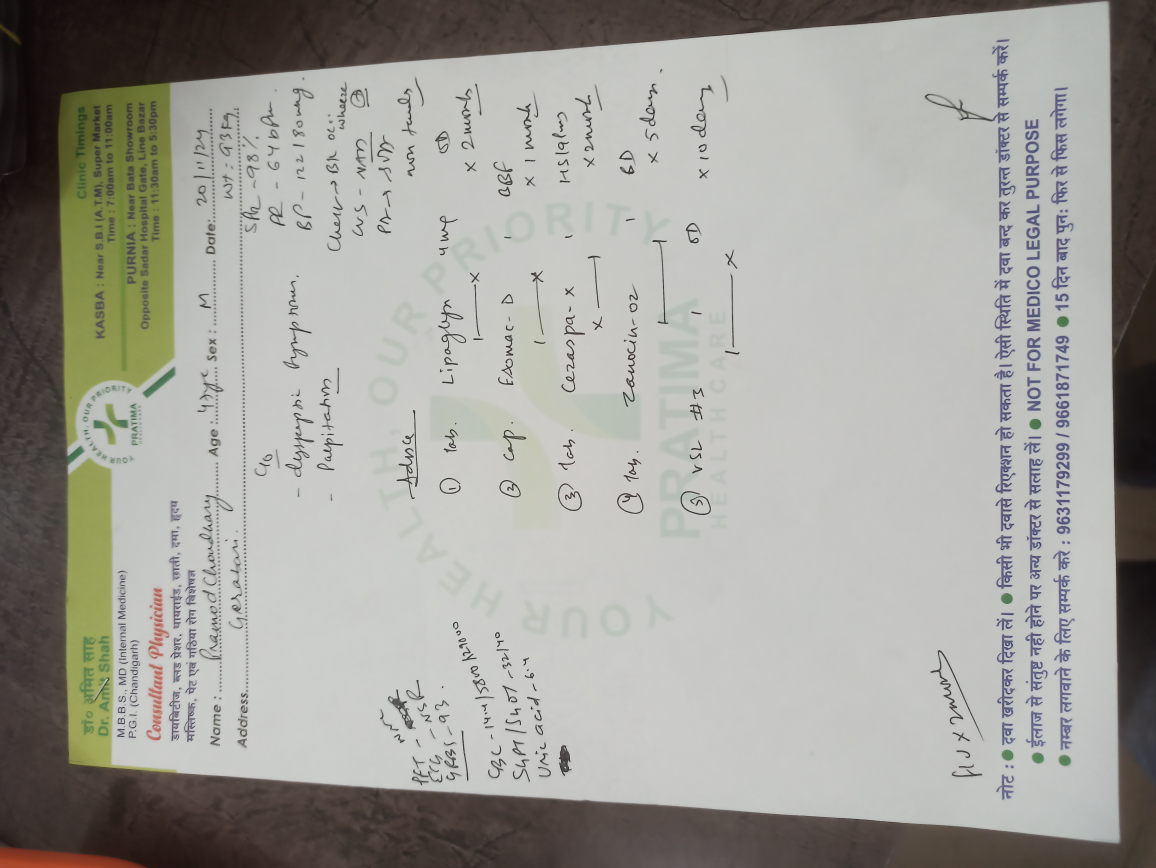 डॉ० अमित साह
Dr. Amit Shah
M.B.B.S., MD (Internal Medicine)
P.G.I. (Chandigarh)
Consultant Physician
डायबिटीज, ब्लड प्रेशर, थायराईड, छाती, दमा, हृदय
मस्तिष्क, पेट एवं गठिया रोग विशेषज्ञ
YOUR HEALTH, OUR PRIORITY
PRATIMA
Clinic Timings
KASBA : Near S.B.I (A.T.M), Super Market
Time : 7:00am to 11:00am
PURNIA : Near Bata Showroom
Opposite Sadar Hospital Gate, Line Bazar
Time : 11:30am to 5:30pm
Name : Pramod Choudhary Age : Sex : M Date: 20/11/24
Address Wt: 93 kg
C/o
- dyspeptic symptoms
- Palpitations
SPO2 - 98%
PR - 64 bpm
BP - 122/80 mmHg
Chest → B/L occ. wheeze
CVS - NAD
P/A → soft
non tender
PFT -
ECG - NSR
GRBS - 93.
CBC - 14.4/5800/
SGPT/SGOT - 32/40
Uric acid - 6.4
Advice
① Tab. Lipaglyn 4mg OD
1——x x 2 months
② Cap. Esomac-D 1 BBF
1——x x 1 month
③ Tab. 1 HS/9pm
x——1 x 2 months
④ Tab. Zanocin-OZ 1 BD
1——1 x 5 days.
⑤ VSL #3 1 OD
1——x x 10 days
YOUR HEALTH, OUR PRIORITY
PRATIMA
HEALTHCARE
F/U x 2 months
नोट : ● दवा खरीदकर दिखा लें। ● किसी भी दवासे रिएक्शन हो सकता है। ऐसी स्थिति में दवा बन्द कर तुरन्त डॉक्टर से सम्पर्क करें।
● ईलाज से संतुष्ट नही होने पर अन्य डॉक्टर से सलाह लें। ● NOT FOR MEDICO LEGAL PURPOSE
● नम्बर लगवाने के लिए सम्पर्क करे : 9631179299 / 9661871749 ● 15 दिन बाद पुन: फिर से फिस लगेगा।